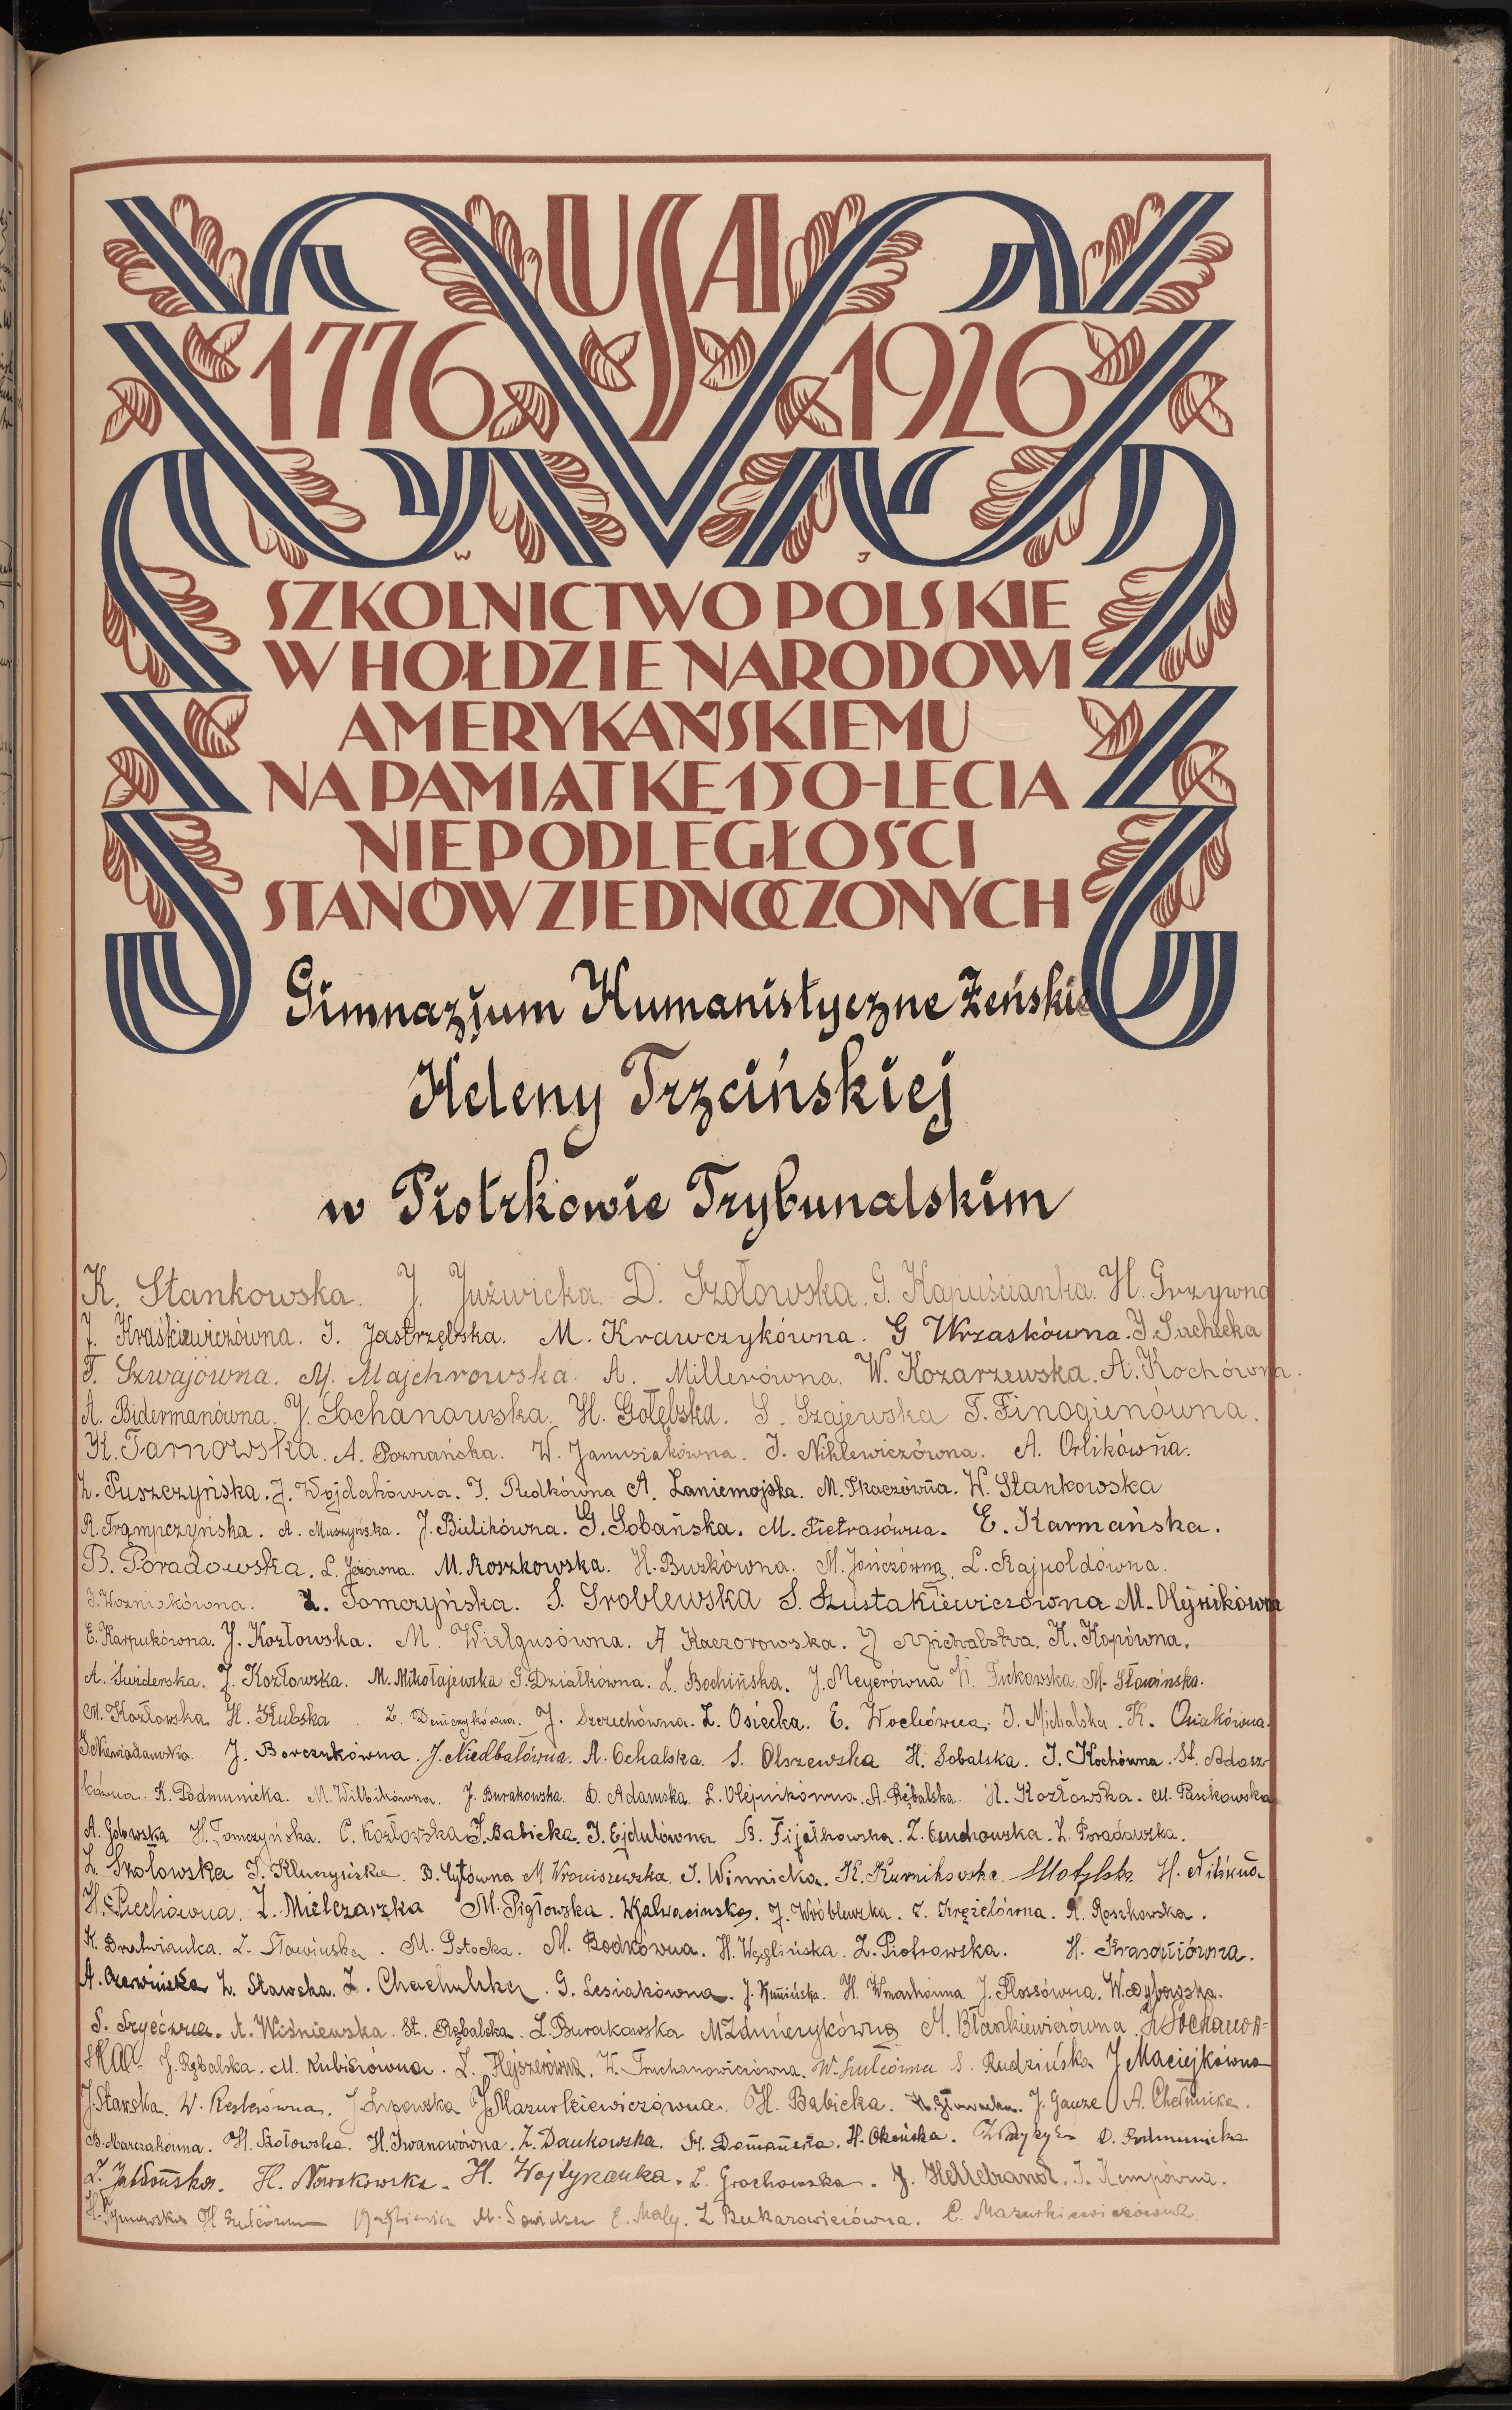 USA
1776 1926
W J
SZKOLNICTWO POLSKIE
W HOŁDZIE NARODOWI
AMERYKAŃSKIEMU
NA PAMIĄTKĘ 150-LECIA
NIEPODLEGŁOŚCI
STANÓW ZJEDNOCZONYCH
Gimnazjum Humanistyczne Żeńskie
Heleny Trzcińskiej
w Piotrkowie Trybunalskim
K. Stankowska. J. Juźwicka. D. Szołowska. G. Kapuścianka. H. Grzywna
J. Kraśkiewiczówna. I. Jastrzębska. M. Krawczykówna. G Wrzaskówna. J. Suchecka
T. Szwajówna. M. Majchrowska. A. Millerówna. W. Kozarzewska. A. Kochówna.
A. Bidermanówna. J. Sochanowska. H. Gołębska. S. Szajewska T. Finogienówna.
K. Tarnowska. A. Poznańska. W. Janusiakówna. J. Nihlewiczówna. A. Orlikówna.
Z. Puszczyńska. J. Wojdakówna. I. Redkówna A. Zaniemojska. M. Tkaczówna. W. Stankowska
R. Trąmpczyńska. A. Muszyńska. J. Bulikówna. G. Sobańska. M. Pietrasówna. E. Karmańska.
B. Poradowska. L. Jeżówna. M. Roszkowska. H. Buzkówna. M. Jończówna. L. Rajpoldówna.
J. Woźniakówna. Z. Tomczyńska. S. Groblewska S. Szustakiewiczówna M. Olejnikówna
E. Karpukówna. J. Kozłowska. M. Wielgusówna. A Kaczorowska. J Michalska. K. Kopówna.
A. Świderska. J. Kozłowska. M. Mikołajewska G. Działkówna. L. Bochińska. J. Meyerówna Fickowska. M. Sławińska.
M. Kozłowska H. Kubska Z. Demczykówna. J. Szczuchówna. Z. Osiecka. E. Wochówna. I. Michalska. K. Osiakówna.
Niewiadomska. J. Borczukówna. J. Niedbałówna. A. Ochalska. S. Olszewska H. Sobalska. I. Kochówna. St. Adasz-
kówna. K. Podmunicka. M. Wilbikówna. J. Burakowska. D. Adamska. L. Olejnikówna. A. Rębalska. H. Kozłowska. M. Pasikowska
A. Golowska H. Tomczyńska. C. Kozłowska I. Babicka. I. Ejdulówna B. Fijałkowska. Z. Czuchowska. Z. Poradowska.
Z. Szołowska I. Kluczyńska. B. Łytówna M Wroniszewska. I. Winnicka. K. Kurnikowska. Motylska H. Nitówna
H. Piechówna. Z. Mielczarzka M. Pigłowska. W. Kalwacińska. J. Wróblewska. I. Krężelówna. A. Roszkowska.
K. Bratwianka. Z. Sławińska. M. Potocka. M. Bodkówna. H. Węglińska. Z. Piotrowska. H. Krasoniówna.
A. Czerwińska Z. Sławska. Z. Chachulska. G. Lesiakówna. J. Kamińska. H. Wrzaskówna J. Flossówna. W. Dybowska.
A. Wiśniewska St. Rębalska. L. Burakowska M Zduńczykówna M. Błaszkiewiczówna Sochanow-
ska J. Rębalska. M. Kubisiówna. Z. Flejszerówna. W. Truchanowiczówna. W. Gutcówna S. Rudzińska J Maciejkówna
J. Stawska. W. Reslerówna. J Lipowska J. Mazurkiewiczówna. H. Babicka. H. Głowacka. J. Gauze A. Chełmicka.
B. Marczakówna. H. Szołowska. H. Iwanowówna. Z. Dankowska. M. Domańska. H. Okońska. D. Podmunicka
Z. Jabłońska. H. Nowakowska. H. Wojtyrawka. L. Grochowska. J. Hellebrandt. I. Kempówna.
H. Tymowska H Gutcówna M. Świdzka E. Mały. Z Bukarowiczówna. C. Mazurkiewiczówna